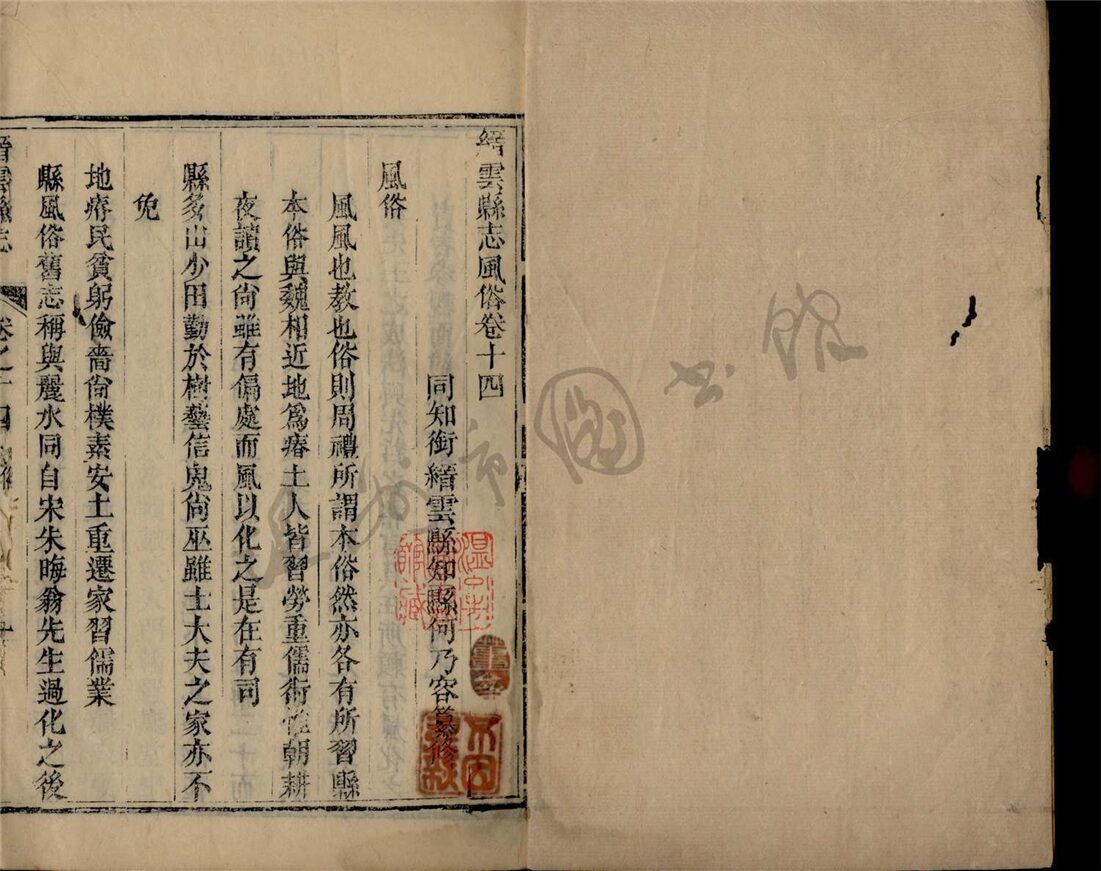 縉雲縣志風俗卷十四
同知銜縉雲縣知縣何乃容纂修
風俗
風風也教也俗則周禮所謂本俗然亦各有所習縣
本俗與魏相近地為瘠土人皆習勞重儒術惟朝耕
夜讀之尙雖有偏處而風以化之是在有司
縣多山少田勤於樹藝信鬼尙巫雖士大夫之家亦不
免
地瘠民貧躬儉嗇尙樸素安土重遷家習儒業
縣風俗舊志稱與麗水同自宋朱晦翁先生過化之後
縉雲縣志
卷之十四